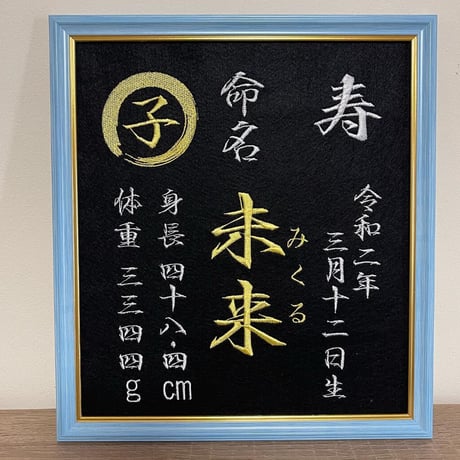 寿
令和二年
三月十二日生
命名
未来
みくる
子
身長 四十八・四cm
体重 三三四四g